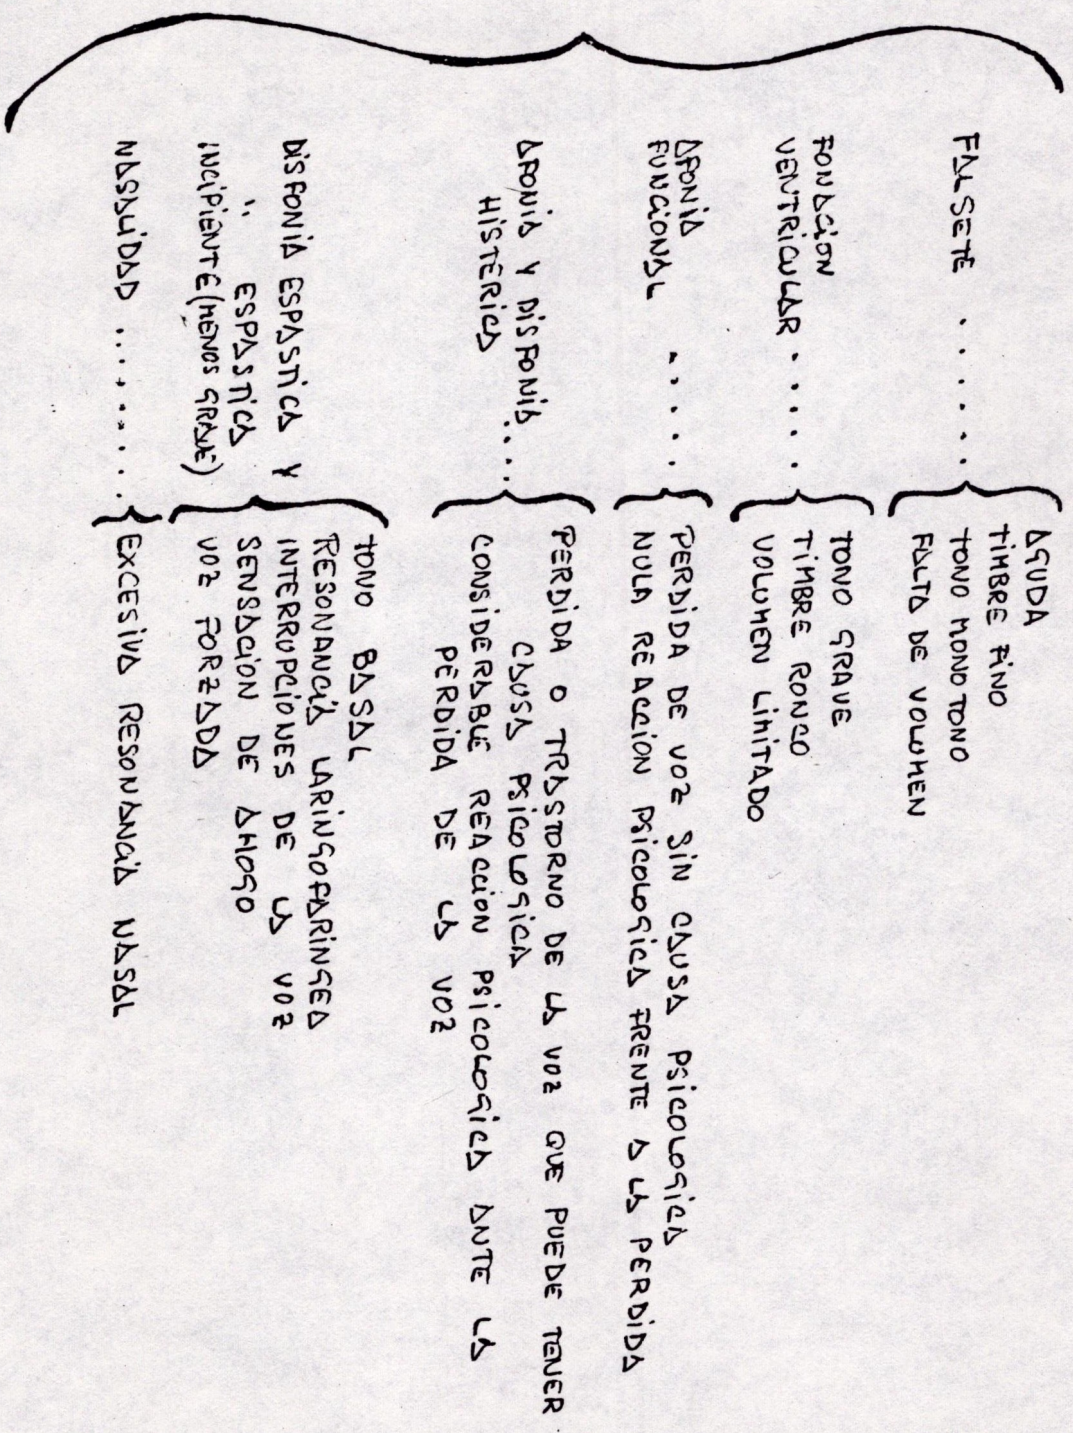 FALSETE ......
AGUDA
TIMBRE FINO
TONO MONOTONO
FALTA DE VOLUMEN
FONACION
VENTRICULAR .....
TONO GRAVE
TIMBRE RONCO
VOLUMEN LIMITADO
AFONIA
FUNCIONAL .....
PERDIDA DE VOZ SIN CAUSA PSICOLOGICA
NULA REACCION PSICOLOGICA FRENTE A LA PERDIDA
AFONIA Y DISFONIA
HISTÉRICA ....
PERDIDA O TRASTORNO DE LA VOZ QUE PUEDE TENER
CAUSA PSICOLOGICA
CONSIDERABLE REACCION PSICOLOGICA ANTE LA
PÉRDIDA DE LA VOZ
DISFONIA ESPASTICA Y
" ESPASTICA
INCIPIENTE (MENOS GRAVE)
TONO BASAL
RESONANCIA LARINGOFARINGEA
INTERRUPCIONES DE LA VOZ
SENSACION DE AHOGO
VOZ FORZADA
NASALIDAD ........
EXCESIVA RESONANCIA NASAL